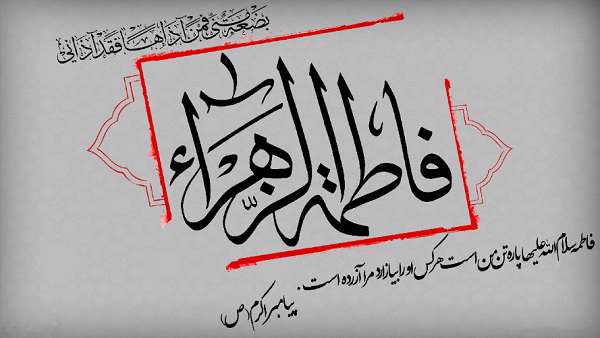 بضعة مني فمن آذاها فقد آذاني
فاطمة الزهراء
فاطمه سلام الله علیها پاره تن من است هرکس او را بیازارد مرا آزرده است.
پیامبر اکرم (ص)